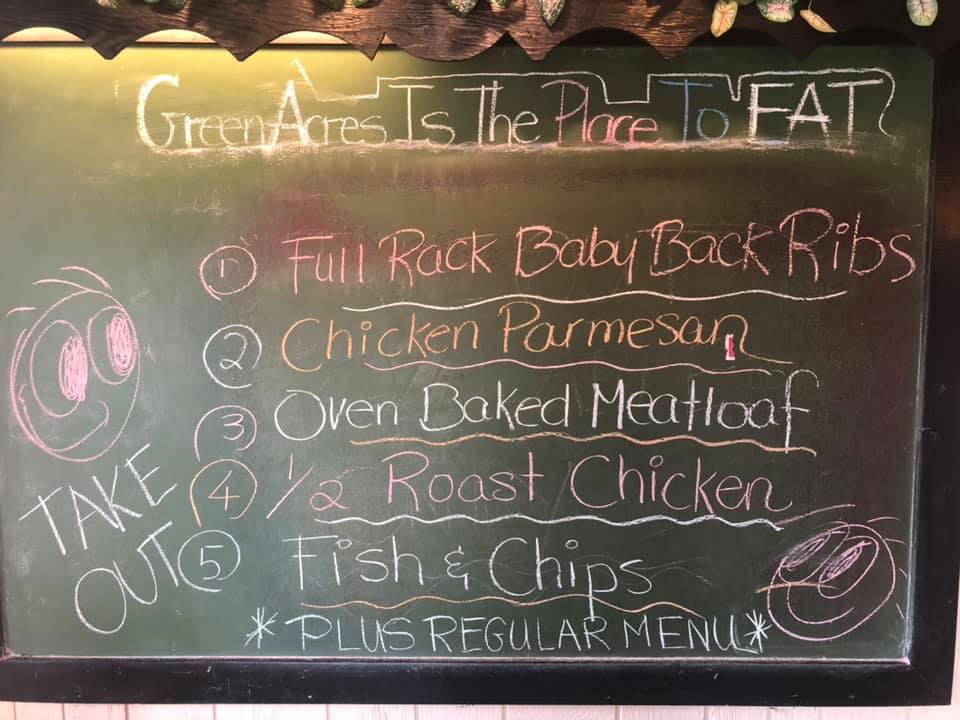 GreenAcres Is The Place To EAT
① Full Rack Baby Back Ribs
② Chicken Parmesan
③ Oven Baked Meatloaf
④ 1/2 Roast Chicken
⑤ Fish & Chips
*PLUS REGULAR MENU*
TAKE
OUT